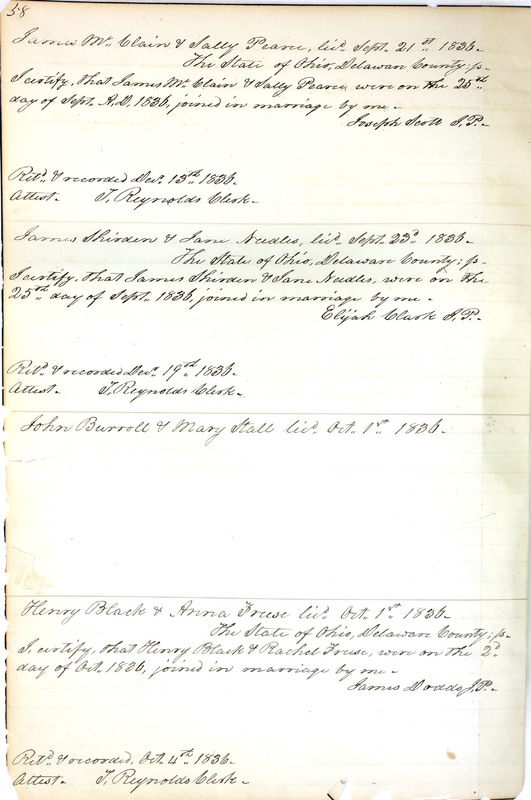 58
James Mc. Clain & Sally Pearce, licd. Sept. 21st. 1836.
The State of Ohio, Delaware County; ss.
I certify, that James Mc. Clain & Sally Pearce, were on the 25th.
day of Sept. A.D. 1836, joined in marriage by me.
Joseph Scott J.P.
Retd. & recorded Dec. 13th. 1836.
Attest. T. Reynolds Clerk.
James Shirden & Jane Needles, licd. Sept. 23d. 1836.
The State of Ohio, Delaware County; ss.
I certify, that James Shirden & Jane Needles, were on the
25th. day of Sept. 1836, joined in marriage by me.
Elijah Clark J.P.
Retd. & recorded Dec. 19th. 1836.
Attest. T. Reynolds Clerk.
John Burroll & Mary Stall licd. Oct. 1st. 1836.
Henry Black & Anna Freese licd. Oct. 1st. 1836.
The State of Ohio, Delaware County; ss.
I, certify, that Henry Black & Rachel Freese, were on the 2d.
day of Oct. 1836, joined in marriage by me.
James Dodds, J.P.
Retd. & recorded, Oct. 4th. 1836.
Attest. T. Reynolds Clerk.